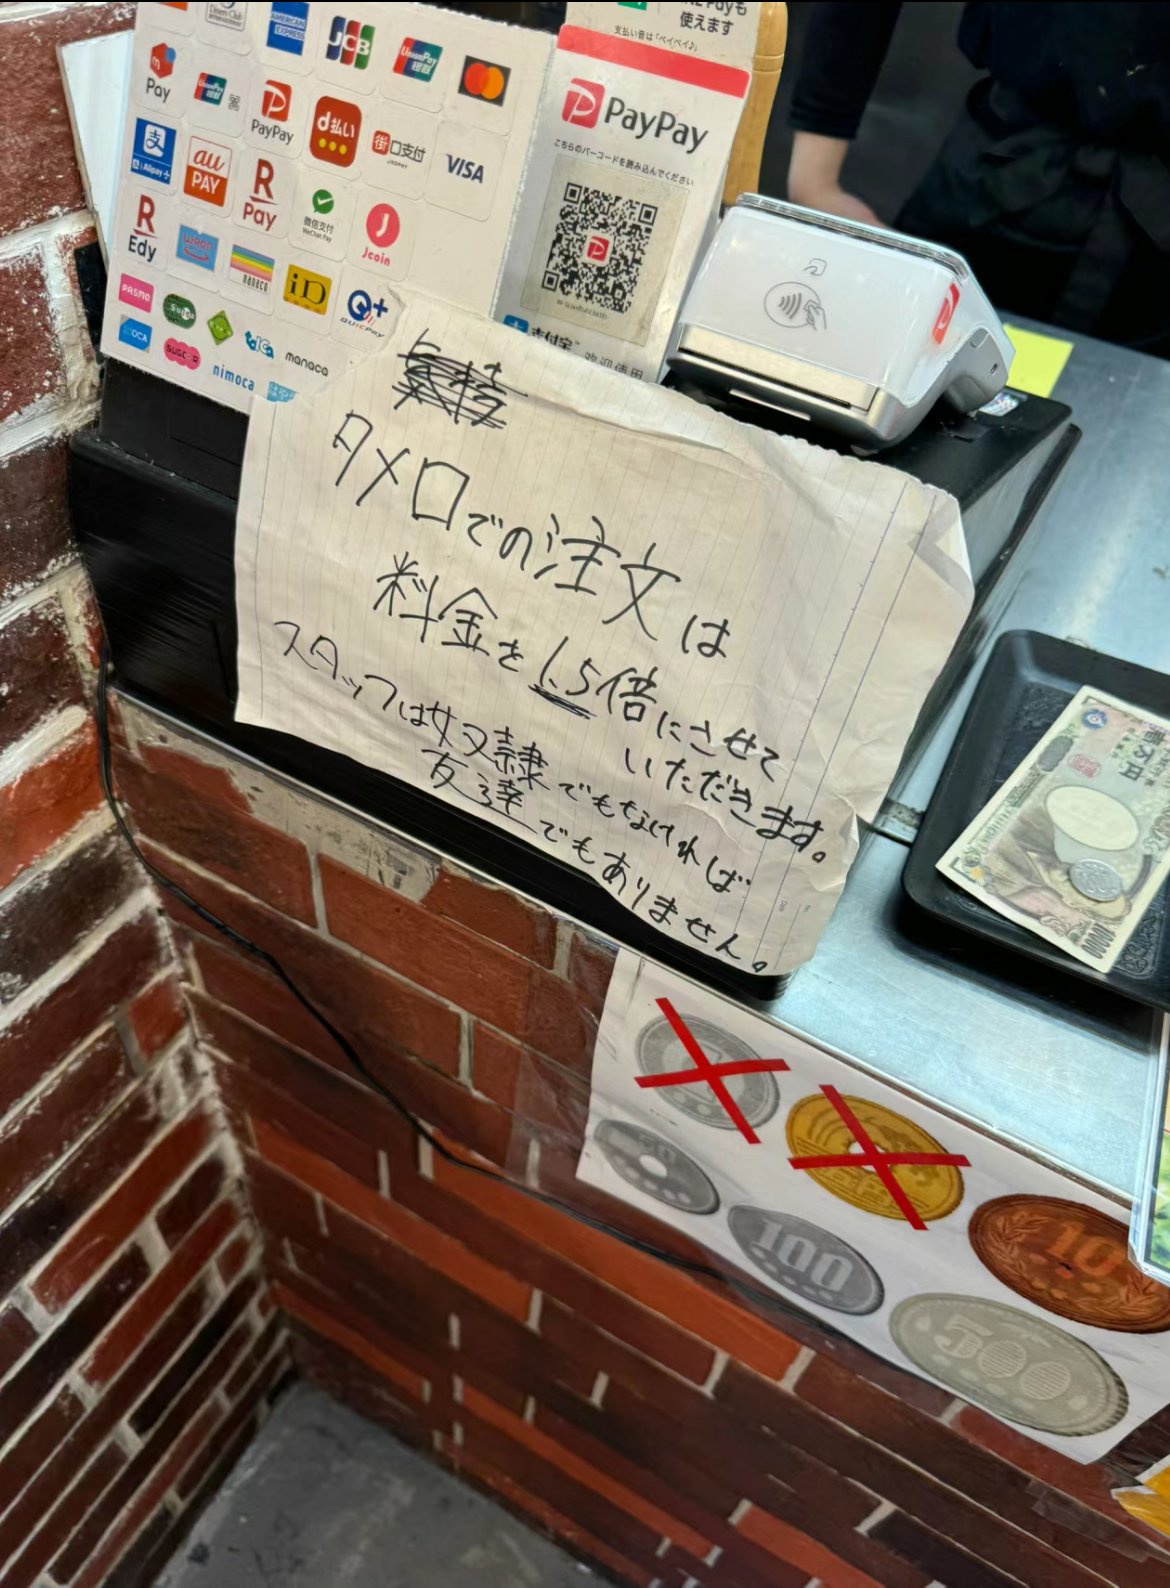 Diners Club
INTERNATIONAL
AMERICAN
EXPRESS
JCB
UnionPay
银联
Pay
UnionPay
银联
PayPay
d払い
街口支付
JKOPAY
VISA
Alipay+
au
PAY
R
Pay
微信支付
WeChat Pay
Jcoin
R
Edy
WAON
nanaco
iD
QUICPay
PASMO
Suica
SUGOCA
nimoca
toica
manaca
Payも
使えます
支払い音は「ペイペイ♪」
PayPay
こちらのバーコードを読み込んでください
支付宝
欢迎使用
タメ口での注文は
料金を1.5倍にさせて
いただきます。
スタッフは奴隷でもなければ
友達でもありません。
壱万円
10000
50
100
10
500